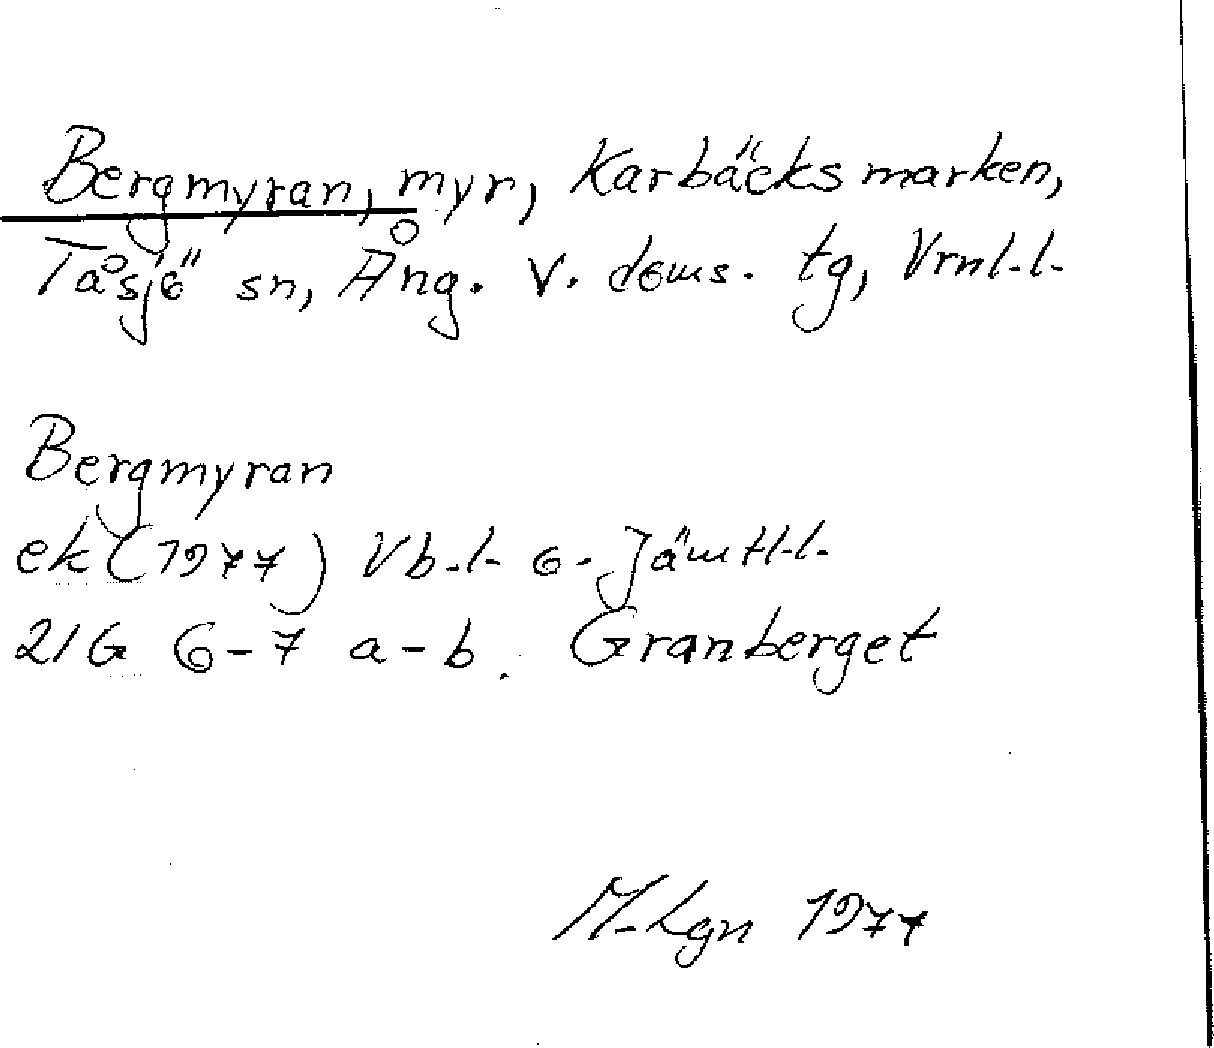 Bergmyran, myr, Karbäcksmarken,
Tåsjö sn, Ång. V. doms. tg, Vrnl.l.
Bergmyran
ek (1977) Vb.l. o. Jämtl.l.
21G 6-7 a-b. Granberget
M-Lgn 1977